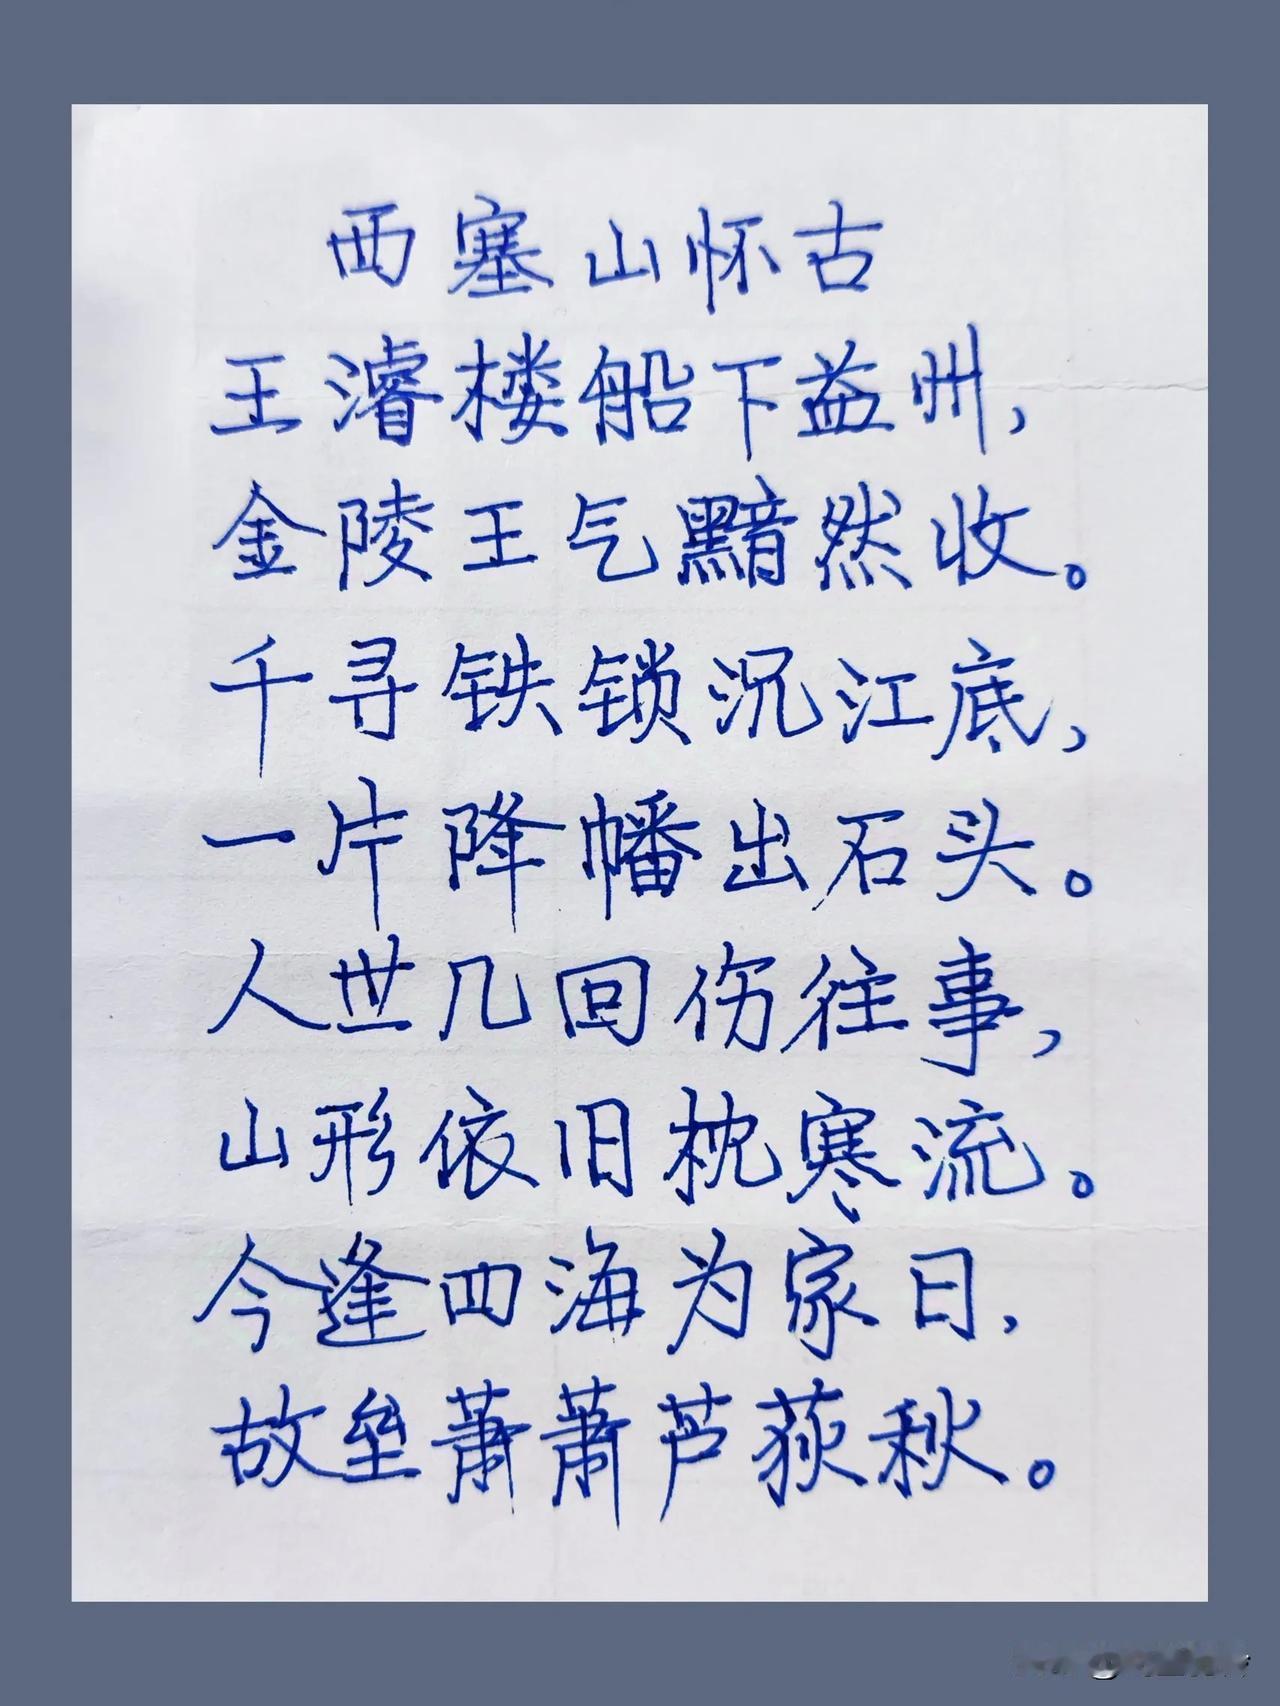 西塞山怀古
王濬楼船下益州,
金陵王气黯然收。
千寻铁锁沉江底,
一片降幡出石头。
人世几回伤往事,
山形依旧枕寒流。
今逢四海为家日,
故垒萧萧芦荻秋。